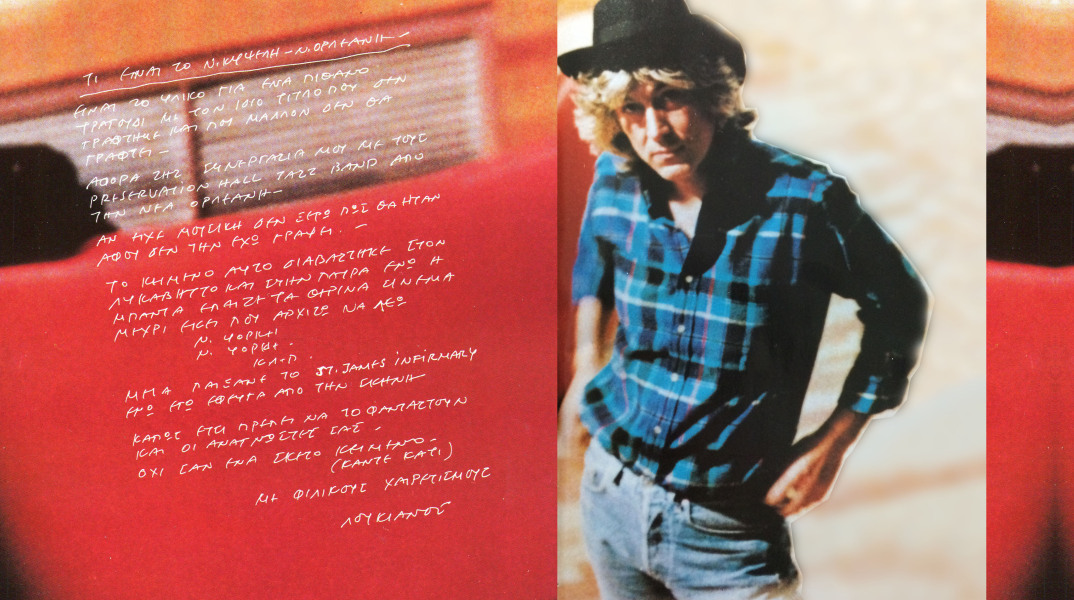 ΤΙ ΕΙΝΑΙ ΤΟ Ν.ΚΥΨΕΛΗ – Ν.ΟΡΛΕΑΝΗ –
ΕΙΝΑΙ ΤΟ ΥΛΙΚΟ ΓΙΑ ΕΝΑ ΠΙΘΑΝΟ
ΤΡΑΓΟΥΔΙ ΜΕ ΤΟΝ ΙΔΙΟ ΤΙΤΛΟ ΠΟΥ ΔΕΝ
ΓΡΑΦΤΗΚΕ ΚΑΙ ΠΟΥ ΜΑΛΛΟΝ ΔΕΝ ΘΑ
ΓΡΑΦΤΕΙ –
ΑΦΟΡΑ ΤΗΣ ΣΥΝΕΡΓΑΣΙΑ ΜΟΥ ΜΕ ΤΟΥΣ
PRESERVATION HALL JAZZ BAND ΑΠΟ
ΤΗΝ ΝΕΑ ΟΡΛΕΑΝΗ –
ΑΝ ΕΙΧΕ ΜΟΥΣΙΚΗ ΔΕΝ ΞΕΡΩ ΠΩΣ ΘΑ ΗΤΑΝ
ΑΦΟΥ ΔΕΝ ΤΗΝ ΕΧΩ ΓΡΑΨΕΙ. –
ΤΟ ΚΕΙΜΕΝΟ ΑΥΤΟ ΔΙΑΒΑΣΤΗΚΕ ΣΤΟΝ
ΛΥΚΑΒΗΤΤΟ ΚΑΙ ΣΤΗΝ ΠΑΤΡΑ ΕΝΩ Η
ΜΠΑΝΤΑ ΕΠΑΙΖΕ ΤΑ ΘΕΡΙΝΑ ΣΙΝΕΜΑ
ΜΕΧΡΙ ΕΚΕΙ ΠΟΥ ΑΡΧΙΖΩ ΝΑ ΛΕΩ
Ν. ΥΟΡΚΗ
Ν. ΥΟΡΚΗ.
Κ.Λ.Π.
ΜΕΤΑ ΠΑΙΞΑΝΕ ΤΟ ST. JAMES INFIRMARY
ΕΝΩ ΕΓΩ ΕΦΕΥΓΑ ΑΠΟ ΤΗΝ ΣΚΗΝΗ –
ΚΑΠΩΣ ΕΤΣΙ ΠΡΕΠΕΙ ΝΑ ΤΟ ΦΑΝΤΑΣΤΟΥΝ
ΚΑΙ ΟΙ ΑΝΑΓΝΩΣΤΕΣ ΣΑΣ –
ΟΧΙ ΣΑΝ ΕΝΑ ΣΚΕΤΟ ΚΕΙΜΕΝΟ –
(ΚΑΝΤΕ ΚΑΤΙ)
ΜΕ ΦΙΛΙΚΟΥΣ ΧΑΙΡΕΤΙΣΜΟΥΣ
ΛΟΥΚΙΑΝΟΣ